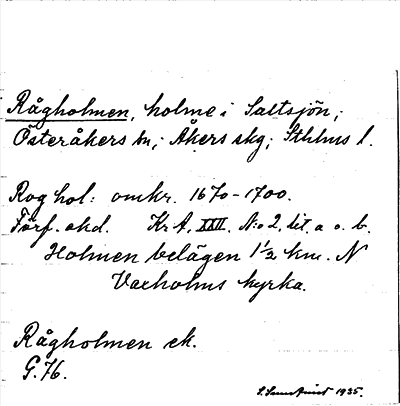 Rågholmen, holme i Saltsjön,;
Österåkers sn,; Åkers skg; Sthlms l.
Rog hol: omkr. 1670-1700.
Förf. okd. Kr A, XXII. N:o 2, lit. a o. b.
Holmen belägen 1½ km. N
Vaxholms kyrka.
Rågholmen ek.
G. 76.
1935.